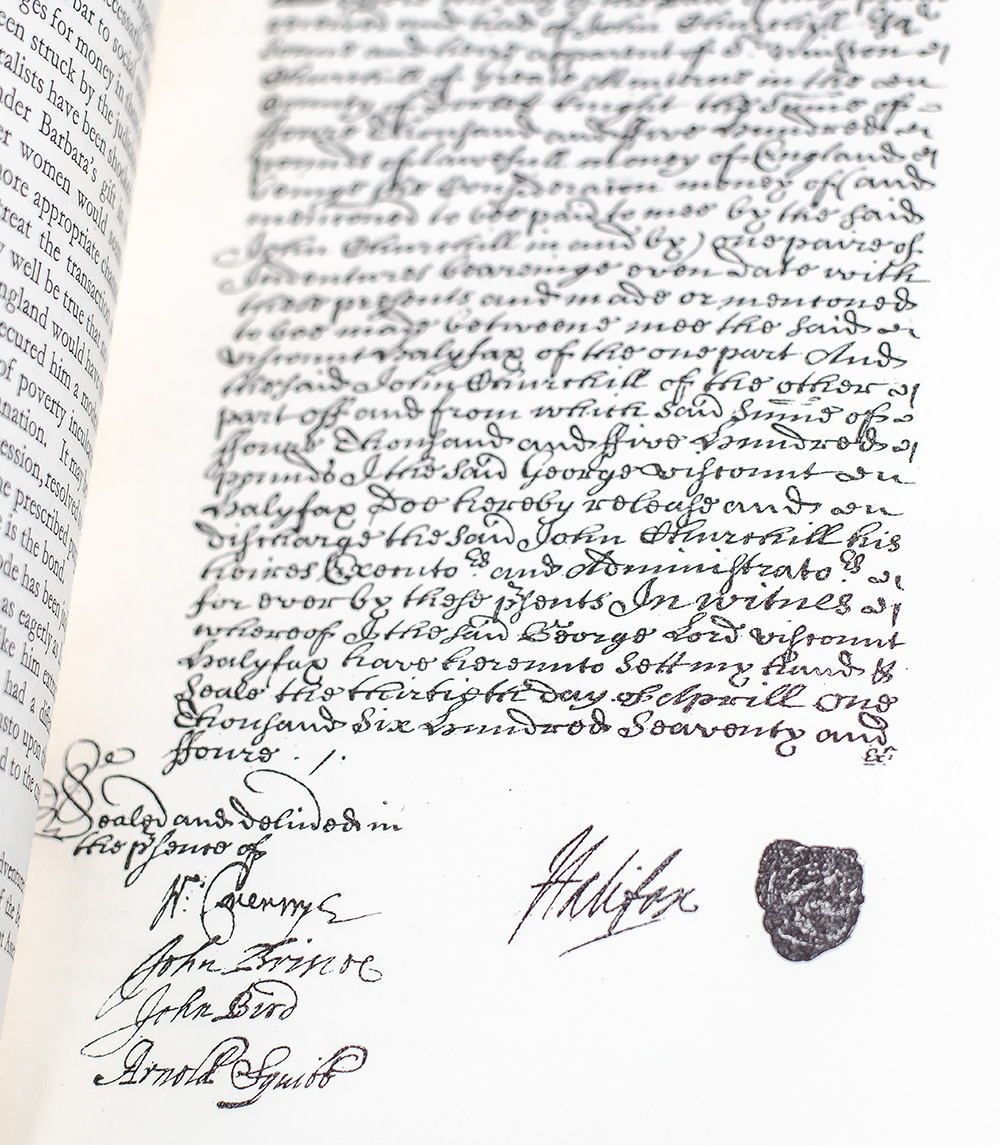 bar to social
ges for money in the
een struck by the
ralists have been
nder Barbara's gift
er women would
more appropriate
treat the transaction
y well be true that
ngland would have
ecured him a
of poverty
nation. It may
ession, resolved
he prescribed
is the bond.
ode has been
as eagerly as
ke him
had a
upon
d to the
of John Churchill
and heire apparent of Sr Winston
Churchill of Greate in the
County of Dorset knight the Sume of
ffoure Thousand and ffive Hundred
pounds of lawefull money of England
beinge the Consideracon money of and
mentioned to bee paid to mee by the said
John Churchill in and by one paire of
Indentures beareinge even date with
these presents and made or mentoned
to bee made betweene mee the said
viscount Halyfax of the one part And
the said John Churchill of the other
part off and from which said Sume of
ffoure Thousand and ffive Hundred
pounds I the said George viscount
Halyfax Doe hereby release and
discharge the said John Churchill his
heires Executors and Administrators
for ever by these psents In witnes
whereof I the said George Lord viscount
Halyfax have hereunto Sett my hand &
Seale the thirtieth day of Aprill One
Thousand Six Hundred Seaventy and
ffoure ./.
Sealed and delived in
the psence of
Halifax
John Briscoe
John Bird
Arnold Squibb